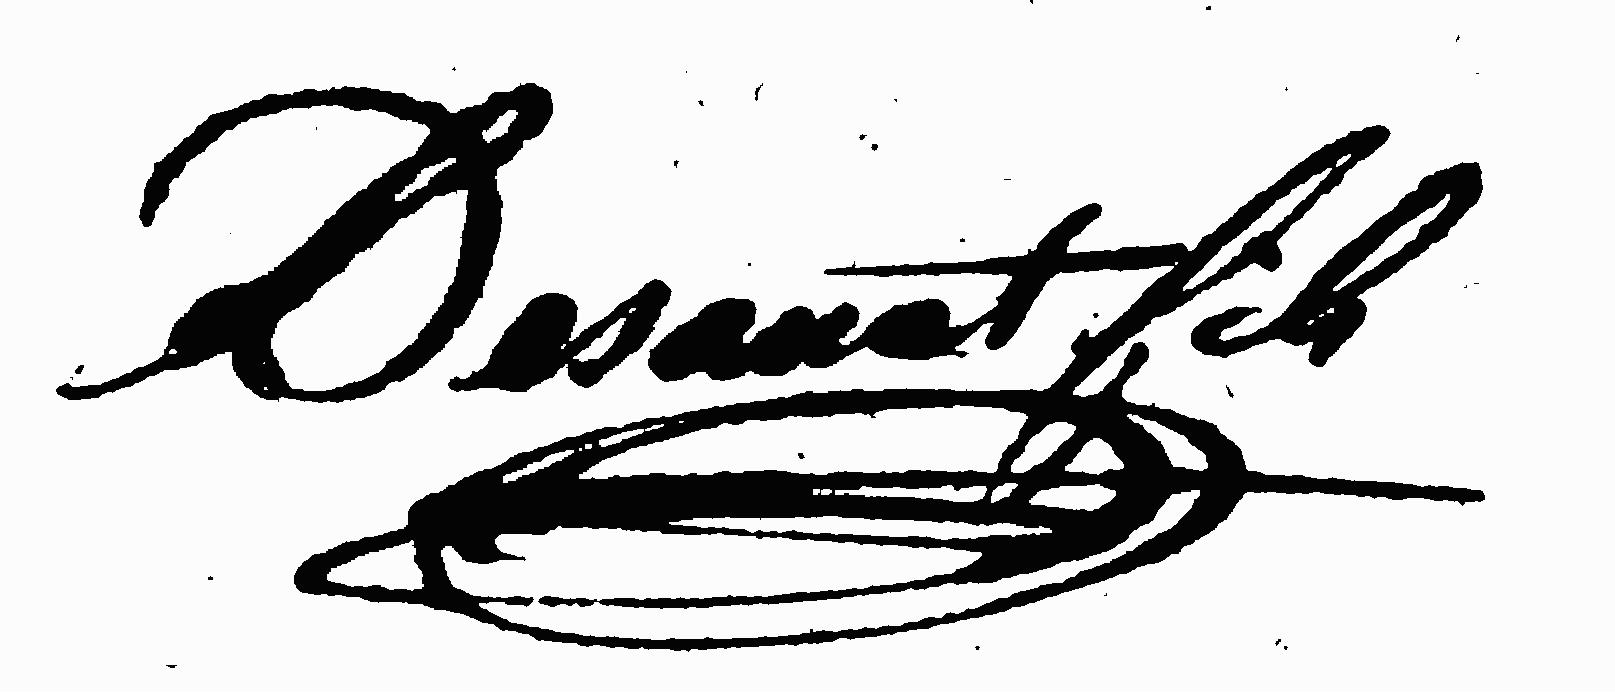 Desanat fils